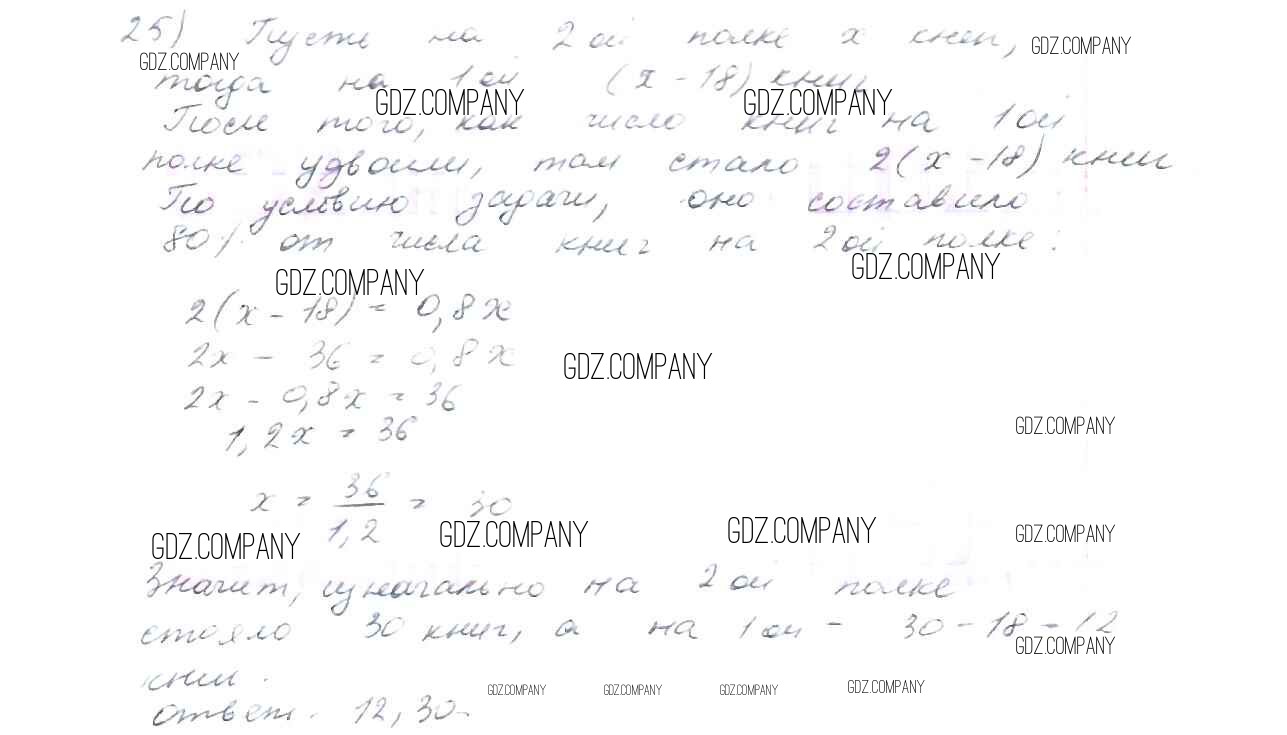 25) Пусть на 2ой полке x книг,
GDZ.COMPANY GDZ.COMPANY
тогда на 1ой (x - 18) книг
GDZ.COMPANY GDZ.COMPANY
После того, как число книг на 1ой
полке удвоили, там стало 2(x - 18) книг
По условию задачи, оно составило
80% от числа книг на 2ой полке:
GDZ.COMPANY GDZ.COMPANY
2(x - 18) = 0,8x
2x - 36 = 0,8x
GDZ.COMPANY
2x - 0,8x = 36
GDZ.COMPANY
1,2x = 36
x = 36/1,2 = 30
GDZ.COMPANY GDZ.COMPANY GDZ.COMPANY GDZ.COMPANY
Значит, изначально на 2ой полке
стояло 30 книг, а на 1ой - 30 - 18 = 12
GDZ.COMPANY
книг.
GDZ.COMPANY GDZ.COMPANY GDZ.COMPANY GDZ.COMPANY
Ответ: 12, 30.